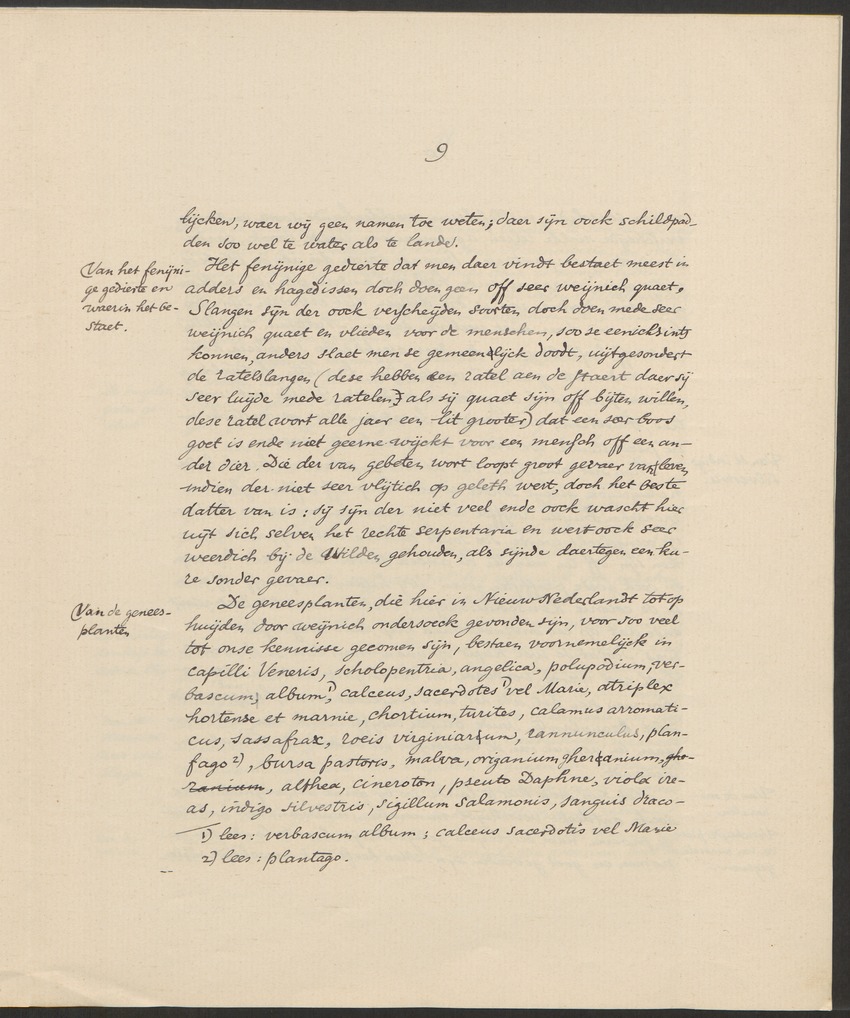 9
lijcken, waer wij geen namen toe weten; daer sijn oock schildpad-
den soo wel te water als te lande.
Van het fenijni-
ge gedierte en
waerin het be-
staet.
Het fenijnige gedierte dat men daer vindt bestaet meest in
adders en hagedissen doch doen geen off seer weijnich quaet.
Slangen sijn der oock verscheijden soorten doch doen mede seer
weijnich quaet en vlieden voor de menschen, soo se eenichsints
konnen, anders slaet men se gemeenlijck doodt, uijtgesondert
de ratelslangen (dese hebben een ratel aen de staert daer sij
seer luijde mede ratelen, als sij quaet sijn off bijten willen,
dese ratel wort alle jaer een lit grooter) dat een seer boos
goet is ende niet geerne wijckt voor een mensch off een an-
der dier. Die der van gebeten wort loopt groot gevaer van leven
indien der niet seer vlijtich op geleth wert, doch het beste
datter van is: sij sijn der niet veel ende oock wascht hier
uijt sich selven het rechte serpentaria en wert oock seer
weerdich bij de Wilden gehouden, als sijnde daertegen een ku-
re sonder gevaer.
Van de genees-
planten
De geneesplanten, die hier in Nieuw Nederlandt tot op
huijden door weijnich ondersoeck gevonden sijn, voor soo veel
tot onse kennisse gecomen sijn, bestaen voornemelijck in
capilli Veneris, scholopentria, angelica, polupodium, ver-
bascum, album 1), calceus, sacerdotes 1) vel Marie, atriplex
hortense et marnie, chortium, turites, calamus arromati-
cus, sassafrax, roeis virginiarum, rannunculus, plan-
fago 2), bursa pastoris, malva, origanium, gheranium, ghe-
ranium, althea, cineroton, pseuto Daphne, viola ire-
as, indigo silvestris, sigillum salamonis, sanguis draco-
1) lees: verbascum album; calceus sacerdotis vel Marie
2) lees: plantago.